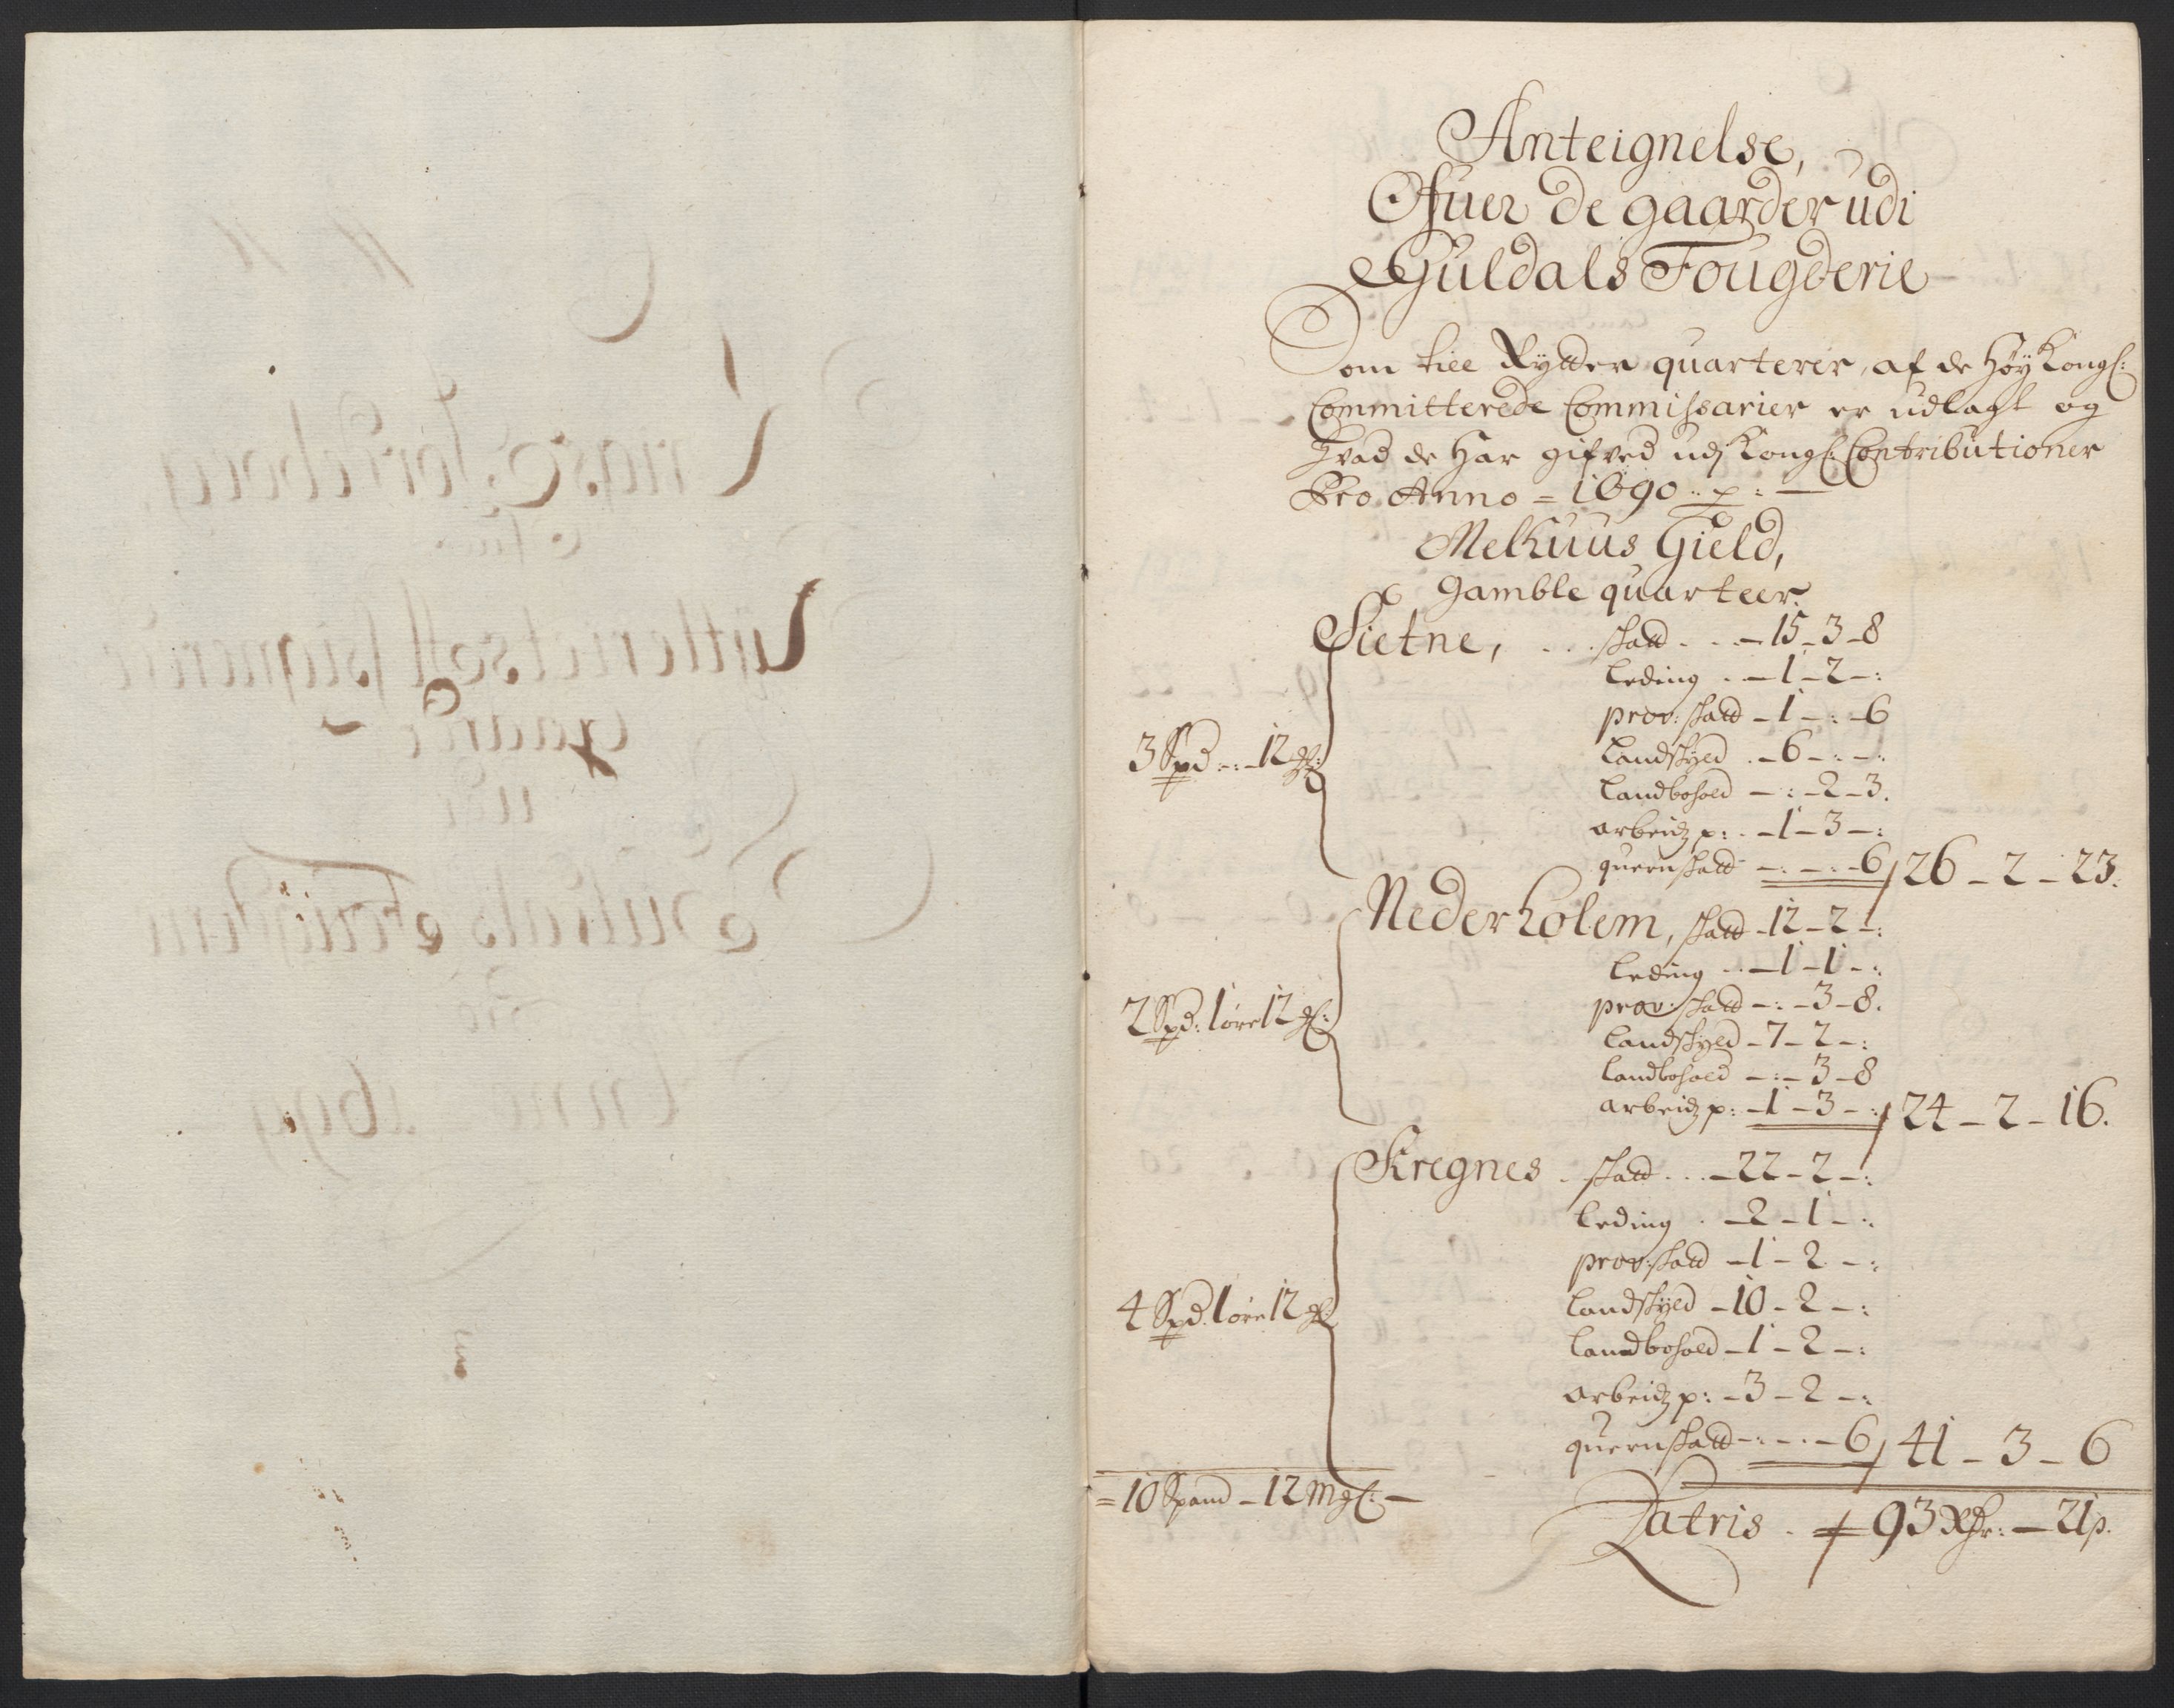 Anteignelse,
Ofuer de gaarder udi
Guldals Fougderie
Som till Rytter quarterer, af de Høy Kongl:
Committerede Commissarier er udlagt og
Hvad de Har gifved udj Kongl: Contributioner
Pro Anno = 1690
Melhuus Gield,
Gamble quarteer.
Sietne, . . . skatt . . . – 15 – 3 – 8
leding . . – 1 – 2 – :
prov: skatt – 1 – : – 6
3 Spd – : – 12
Landskyld . – 6 – : – :
Landbohold – : – 2 – 3.
arbeidz p: . – 1 – 3 – :
quernskatt – : – : – 6 / 26 – 2 – 23.
Nederholem, skatt – 12 – 2 – :
leding . . – 1 – 1 – :
prov: skatt – : – 3 – 8.
2 Spd: 1 øre 12
Landskyld – 7 – 2 – :
Landbohold – : – 3 – 8
arbeidz p: – 1 – 3 – : / 24 – 2 – 16.
Kregnes . skatt . . . – 22 – 2 – :
leding . – 2 – 1 – :
prov: skatt – 1 – 2 – :
4 Spd. 1 øre 12
Landskyld – 10 – 2 – :
Landbohold – 1 – 2 – :
arbeidz p: – 3 – 2 – :
quernskatt – : – : – 6 / 41 – 3 – 6
= 10 Spand – 12 Mgl: –
Latris . 93 Rdr: – 21 s.